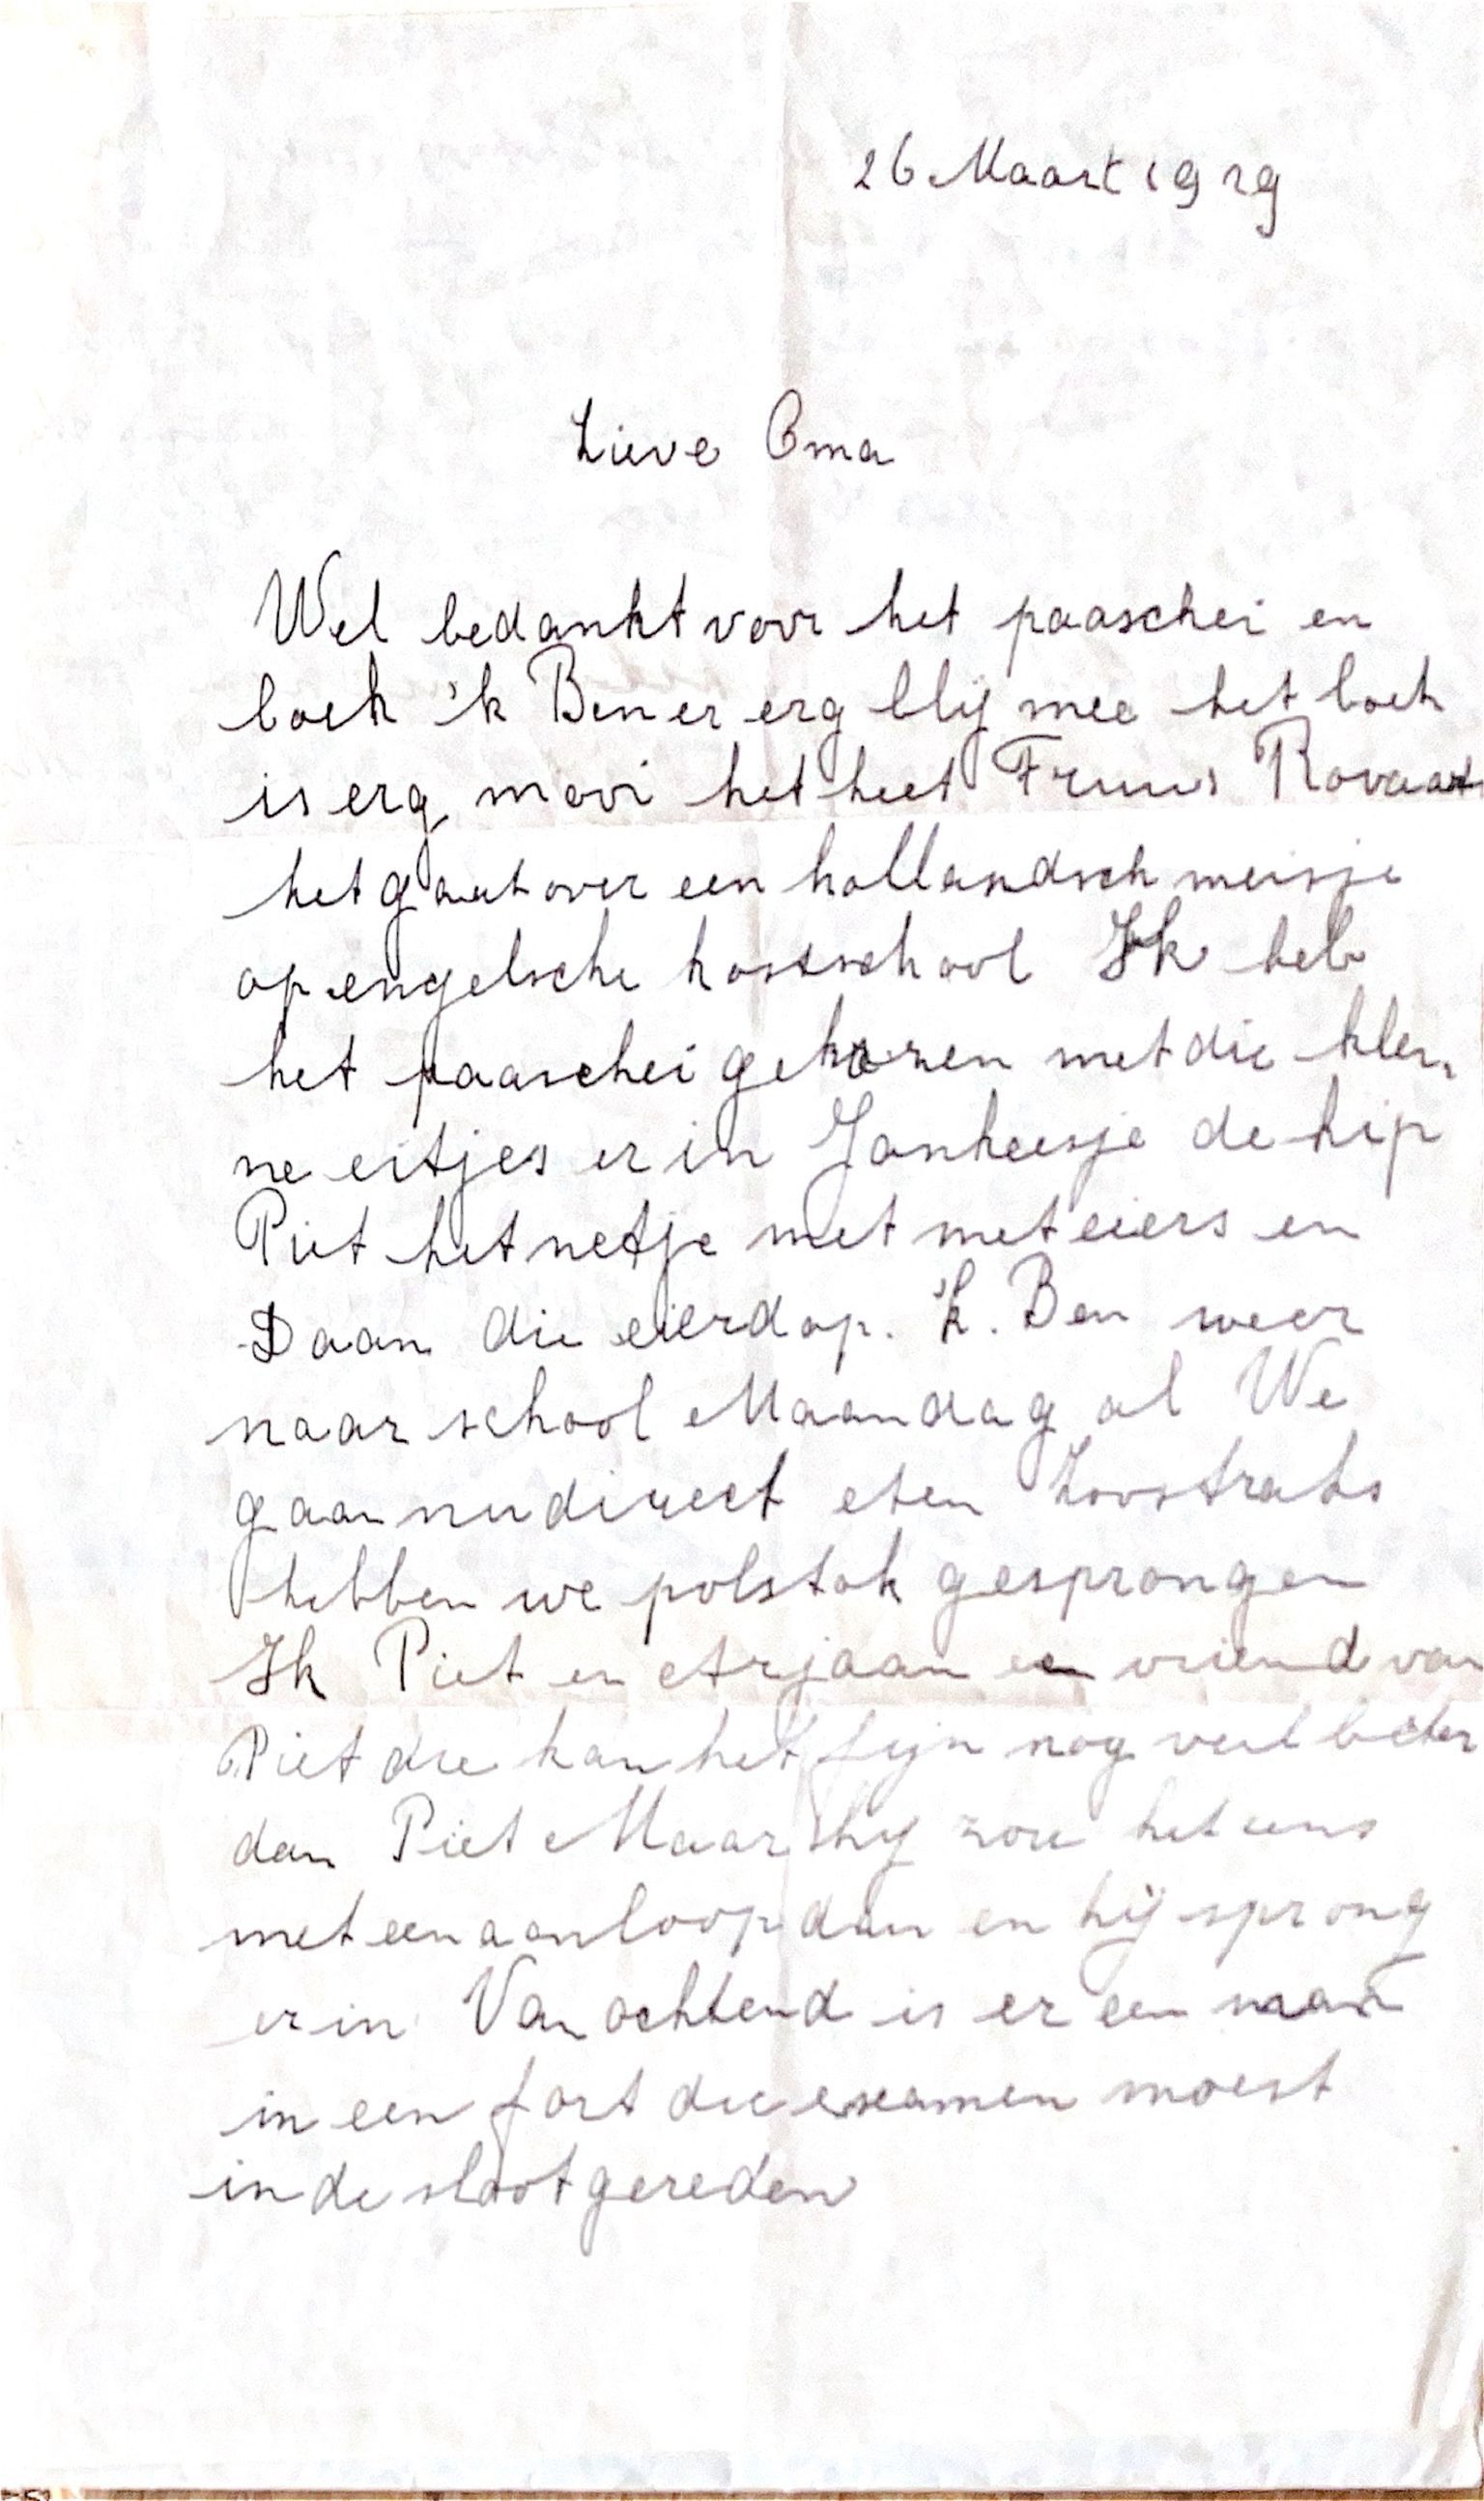 26 Maart 1929
Lieve Oma
Wel bedankt voor het paaschei en
boek 'k Ben er erg blij mee het boek
is erg mooi het heet Truus Rovaart
het gaat over een hollandsch meisje
op engelsche kostschool Ik heb
het paaschei gekozen met die klei
ne eitjes er in Jankeesje de kip
Piet het netje met met eiers en
Daan die eierdop. 'k. Ben weer
naar school Maandag al We
gaan nu direct eten
hebben we polstok gesprongen
Ik Piet en Arjaan een vriend van
Piet die kan het fijn nog veel beter
dan Piet Maar hij zou het eens
met een aanloop dan en hij sprong
er in Van ochtend is er een man
in een fort die examen moest
in de sloot gereden